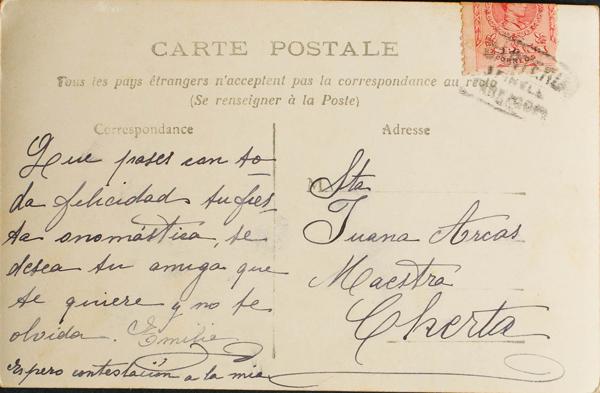 CARTE POSTALE
Tous les pays étrangers n'acceptent pas la correspondance au recto
(Se renseigner à la Poste)
Correspondance
Que pases con to-
da felicidad tu fies-
ta onomástica, te
desea tu amiga que
te quiere y no te
olvida. Emilia
Espero contestación a la mia
Adresse
M
Sta
Juana Arcas
Maestra
Cherta
CORREOS